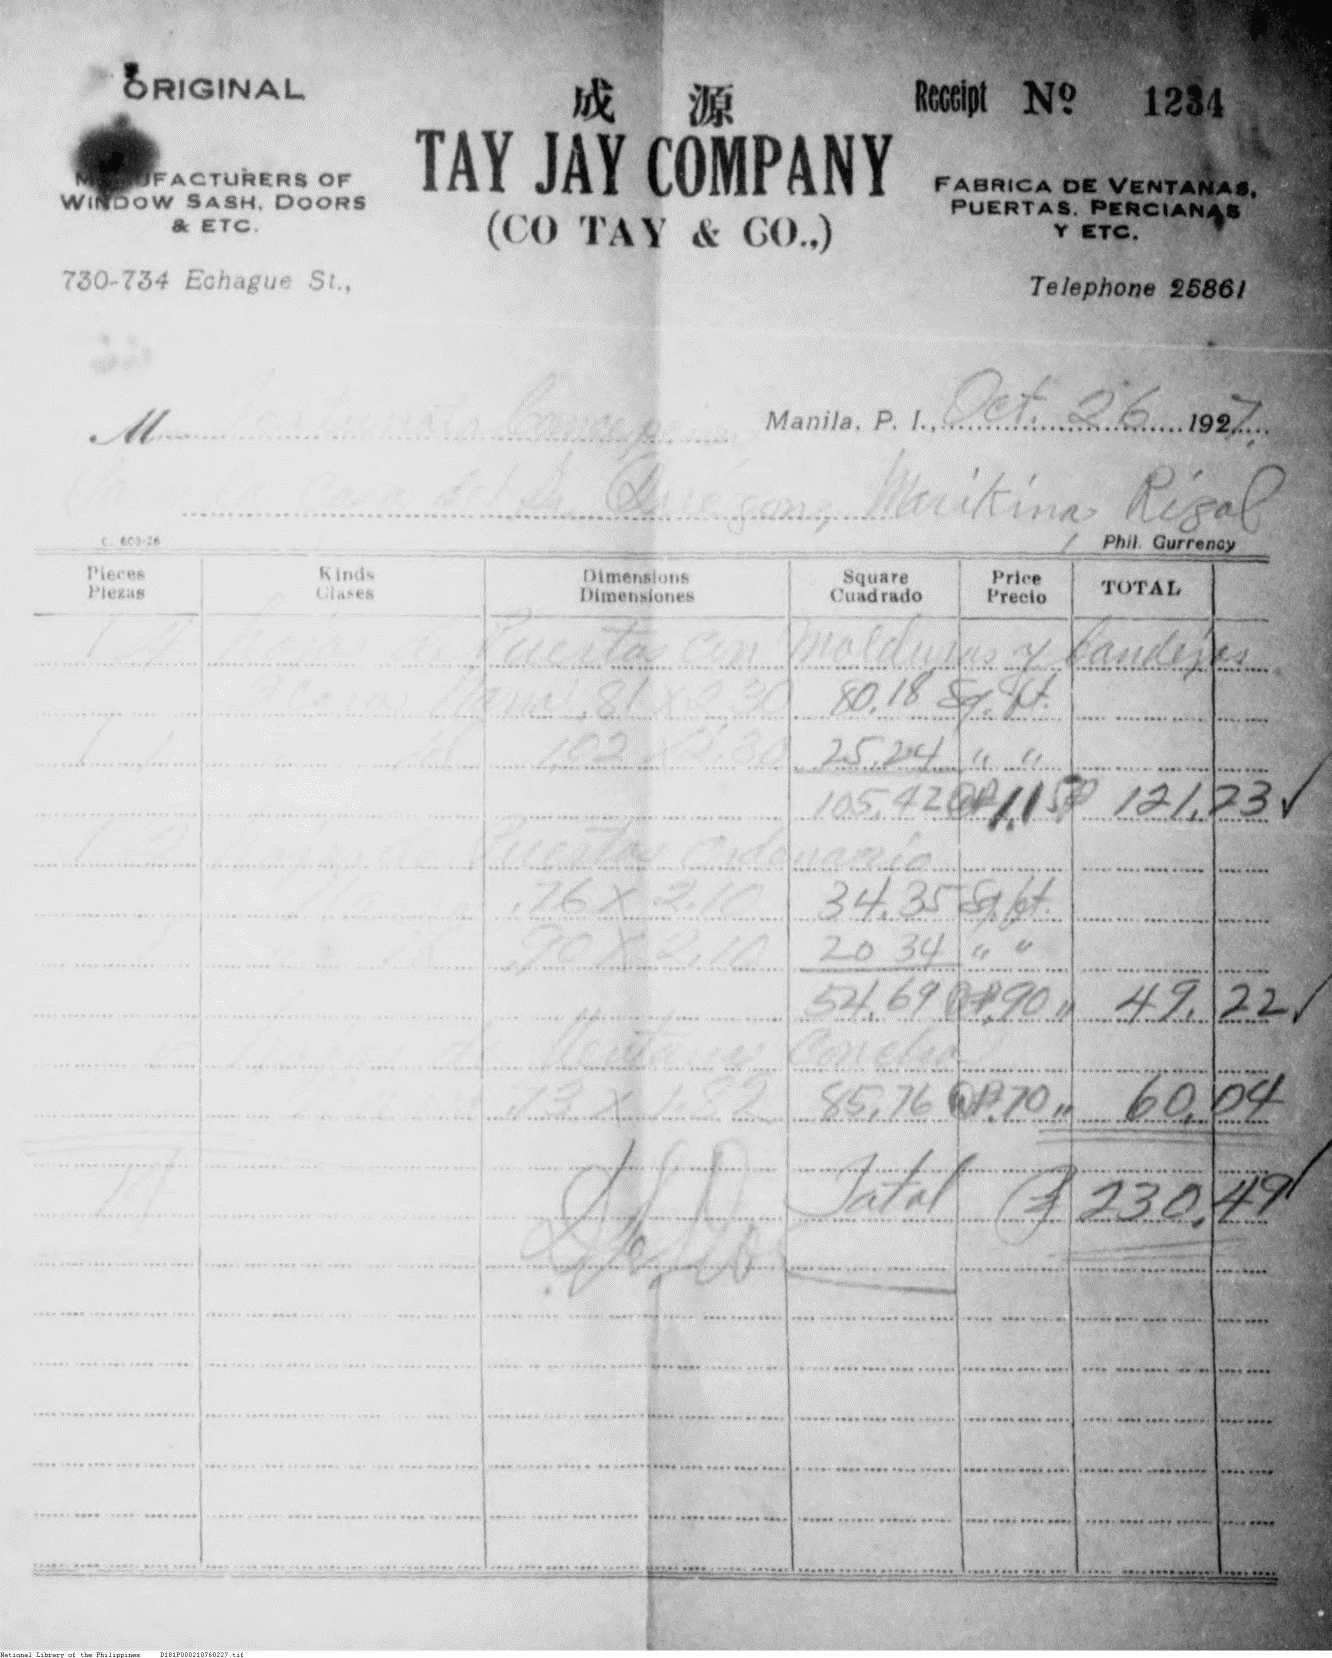 ORIGINAL
成 源
Receipt Nº 1234
TAY JAY COMPANY
(CO TAY & CO.,)
MANUFACTURERS OF
WINDOW SASH, DOORS
& ETC.
FABRICA DE VENTANAS,
PUERTAS, PERCIANAS
Y ETC.
730-734 Echague St.,
Telephone 25861
M
Manila, P. I., Oct. 26 1927.
casa del Sr. Marikina Rizal
C. 603-26
Phil. Currency
Pieces Kinds Dimensions Square Price TOTAL
Piezas Clases Dimensiones Cuadrado Precio
hojas de Puertas con Molduras y bandejas
.81 x 2.30 80.18 Sq. ft.
1.02 x 2.30 25.24 " "
105.42 @ ₱1.15 121.23 ✓
hojas de Puertas ordenario
.76 x 2.10 34.35 Sq. ft.
.90 x 2.10 20 34 " "
54.69 @ ₱.90 " 49.22 ✓
de Ventanas Conchas
.73 x 1.82 85.76 @ ₱.70 " 60.04
17 Total ₱ 230.49 ✓
National Library of the Philippines D181P000210760227.tif